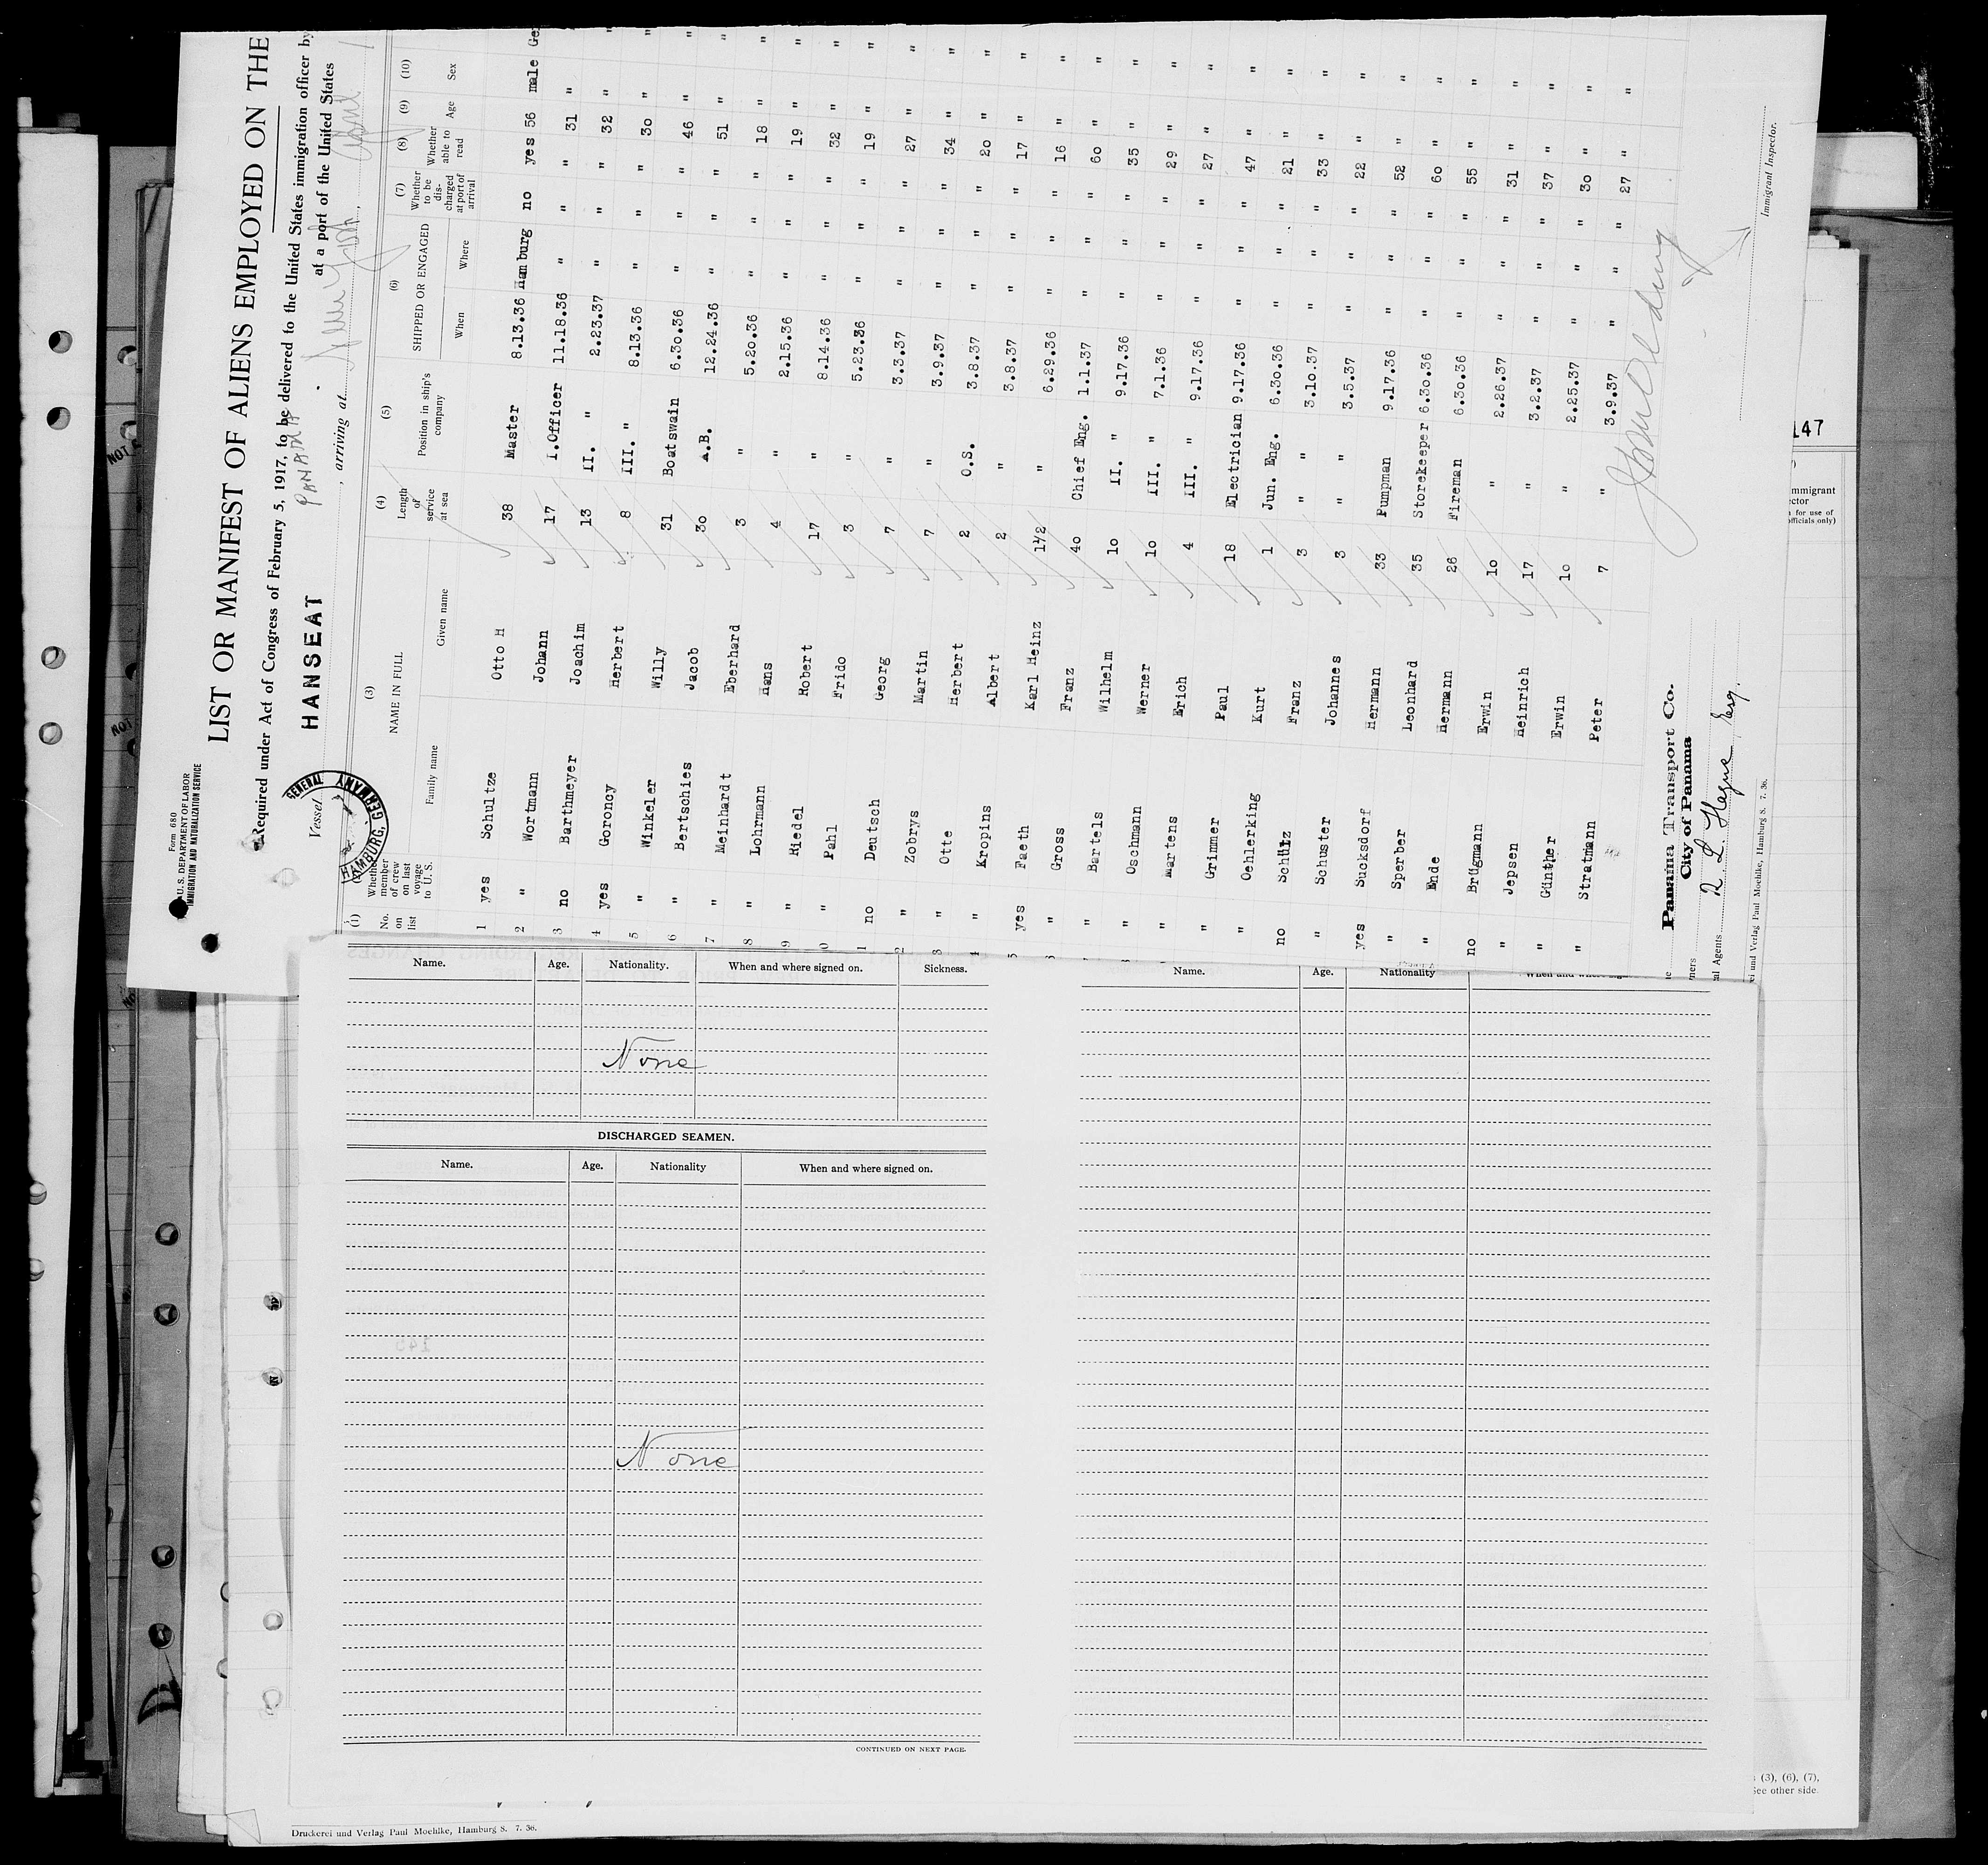 Form 680
U. S. DEPARTMENT OF LABOR
IMMIGRATION AND NATURALIZATION SERVICE
LIST OR MANIFEST OF ALIENS EMPLOYED ON THE
Required under Act of Congress of February 5, 1917, to be delivered to the United States immigration officer by
at a port of the United States
PANAMA
Vessel HANSEAT , arriving at New York, April
GENERAL HAMBURG, GERMANY
(1) (3) (4) (5) (6) (7) (8) (9) (10)
No. on list
Whether member of crew on last voyage to U. S.
NAME IN FULL
Family name Given name
Length of service at sea
Position in ship's company
SHIPPED OR ENGAGED
When Where
Whether to be discharged at port of arrival
Whether able to read
Age
Sex
1 yes Schultze Otto H 38 Master 8.13.36 Hamburg no yes 56 male Ge
2 " Wortmann Johann 17 I.Officer 11.18.36 " " " 31 " "
3 no Barthmeyer Joachim 13 II. " 2.23.37 " " " 32 " "
4 yes Goroncy Herbert 8 III. " 8.13.36 " " " 30 " "
5 " Winkeler Willy 31 Boatswain 6.30.36 " " " 46 " "
6 " Bertschies Jacob 30 A.B. 12.24.36 " " " 51 " "
7 " Meinhardt Eberhard 3 " 5.20.36 " " " 18 " "
8 " Lohrmann Hans 4 " 2.15.36 " " " 19 " "
9 " Riedel Robert 17 " 8.14.36 " " " 32 " "
0 " Pahl Frido 3 " 5.23.36 " " " 19 " "
1 no Deutsch Georg 7 " 3.3.37 " " " 27 " "
2 " Zobrys Martin 7 " 3.9.37 " " " 34 " "
3 " Otte Herbert 2 O.S. 3.8.37 " " " 20 " "
4 " Kropins Albert 2 " 3.8.37 " " " 17 " "
5 yes Faeth Karl Heinz 1½ " 6.29.36 " " " 16 " "
" Gross Franz 40 Chief Eng. 1.1.37 " " " 60 " "
" Bartels Wilhelm 10 II. " 9.17.36 " " " 35 " "
" Oschmann Werner 10 III. " 7.1.36 " " " 29 " "
" Martens Erich 4 III. " 9.17.36 " " " 27 " "
" Grimmer Paul 18 Electrician 9.17.36 " " " 47 " "
" Oehlerking Kurt 1 Jun. Eng. 6.30.36 " " " 21 " "
no Schütz Franz 3 " " 3.10.37 " " " 33 " "
" Schuster Johannes 3 " " 3.5.37 " " " 22 " "
yes Sucksdorf Hermann 33 Pumpman 9.17.36 " " " 52 " "
" Sperber Leonhard 35 Storekeeper 6.30.36 " " " 60 " "
" Ende Hermann 26 Fireman 6.30.36 " " " 55 " "
no Brügmann Erwin 10 " 2.26.37 " " " 31 " "
" Jepsen Heinrich 17 " 3.2.37 " " " 37 " "
" Günther Erwin 10 " 2.25.37 " " " 30 " "
" Stratmann Peter 7 " 3.9.37 " " " 27 " "
Immigrant Inspector.
Panama Transport Co.
City of Panama
R. L. Hague, Esq.
al Agents
ei und Verlag Paul Moehlke, Hamburg S. 7. 36.
147
mmigrant
ector
for use of
officials only)
Name. Age. Nationality. When and where signed on. Sickness.
None
DISCHARGED SEAMEN.
Name. Age. Nationality When and where signed on.
None
CONTINUED ON NEXT PAGE.
Name. Age. Nationality When and where signed on.
(3), (6), (7),
See other side.
Druckerei und Verlag Paul Moehlke, Hamburg S. 7. 36.